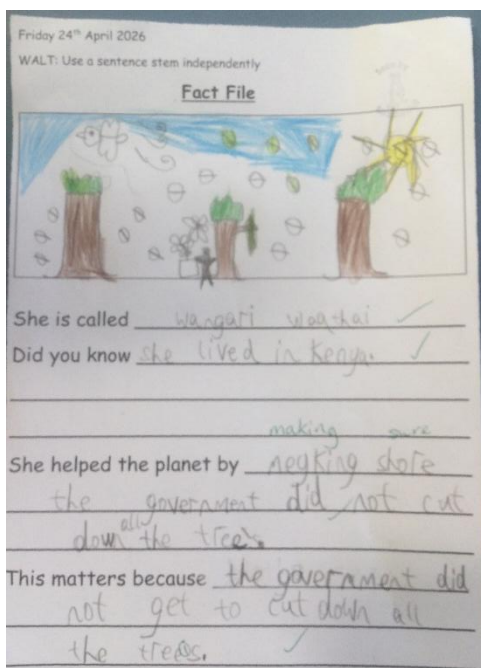 Friday 24th April 2026
WALT: Use a sentence stem independently
Fact File
She is called wangari waathai ✓
Did you know she lived in Kenya. ✓
making sure
She helped the planet by megking shore
the government did not cut
down all the trees.
This matters because the government did
not get to cut down all
the trees. ✓